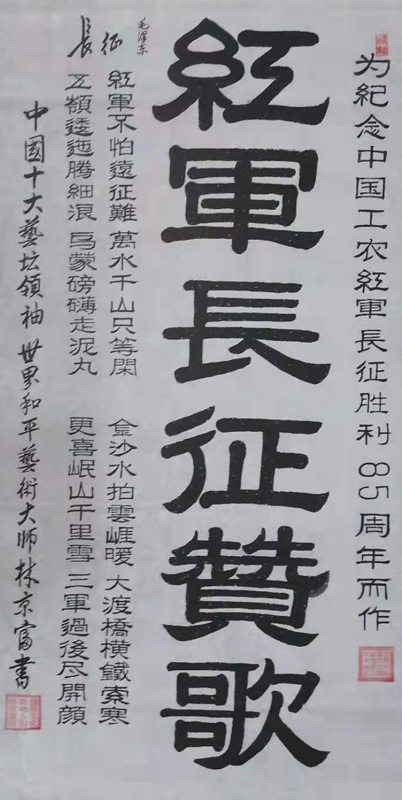 为紀念中国工农红軍長征胜利85周年而作
紅軍長征赞歌
長征
毛泽东
紅軍不怕遠征難 萬水千山只等閑
五嶺逶迤腾細浪 烏蒙磅礴走泥丸
金沙水拍雲崖暖 大渡橋横鐵索寒
更喜岷山千里雪 三軍過後尽開顔
中國十大藝坛領袖 世界和平藝術大师林京富書